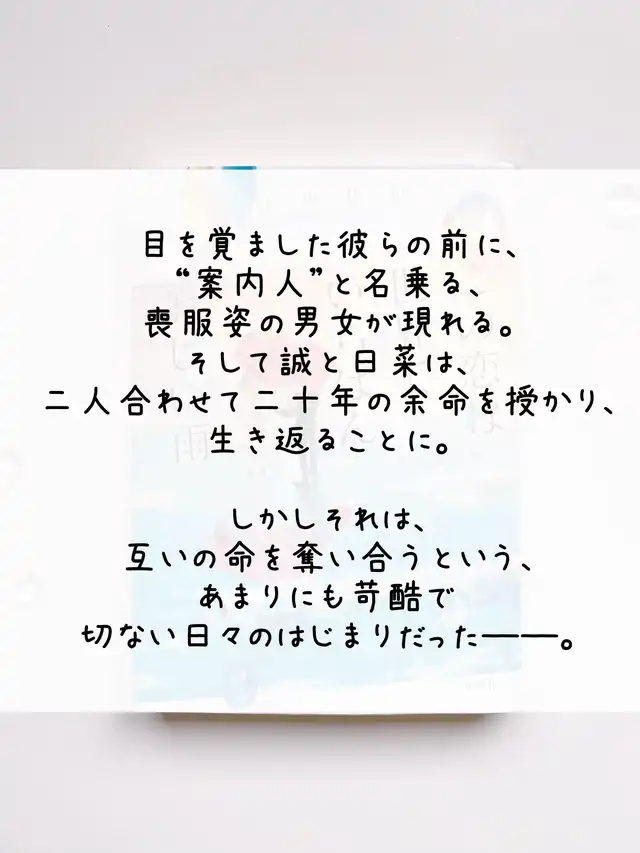 目を覚ました彼らの前に、
“案内人”と名乗る、
喪服姿の男女が現れる。
そして誠と日菜は、
二人合わせて二十年の余命を授かり、
生き返ることに。
しかしそれは、
互いの命を奪い合うという、
あまりにも苛酷で
切ない日々のはじまりだった――。